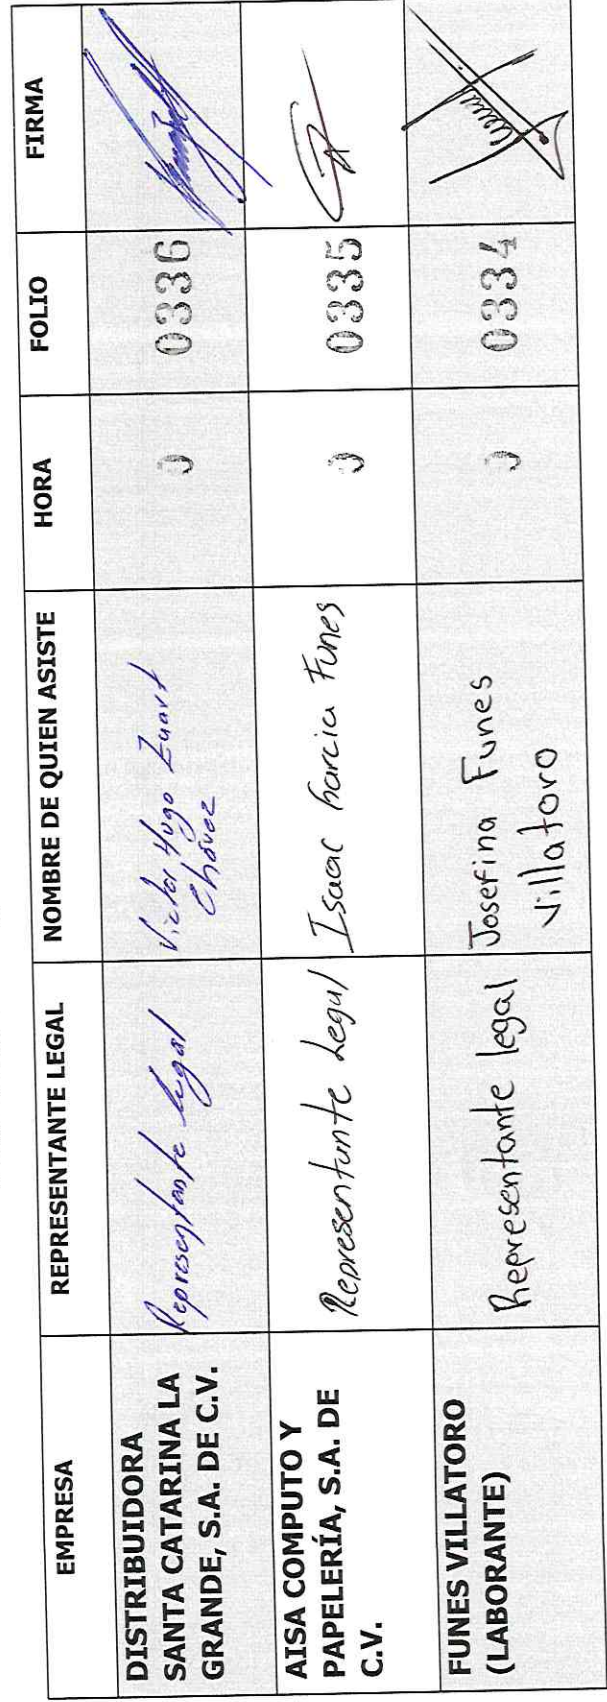 EMPRESA
REPRESENTANTE LEGAL
NOMBRE DE QUIEN ASISTE
HORA
FOLIO
FIRMA
DISTRIBUIDORA
SANTA CATARINA LA
GRANDE, S.A. DE C.V.
Representante legal
Victor Hugo Zuart
Chávez
0336
AISA COMPUTO Y
PAPELERÍA, S.A. DE
C.V.
Representante Legal
Isaac Garcia Funes
0335
FUNES VILLATORO
(LABORANTE)
Representante legal
Josefina Funes
Villatoro
0334